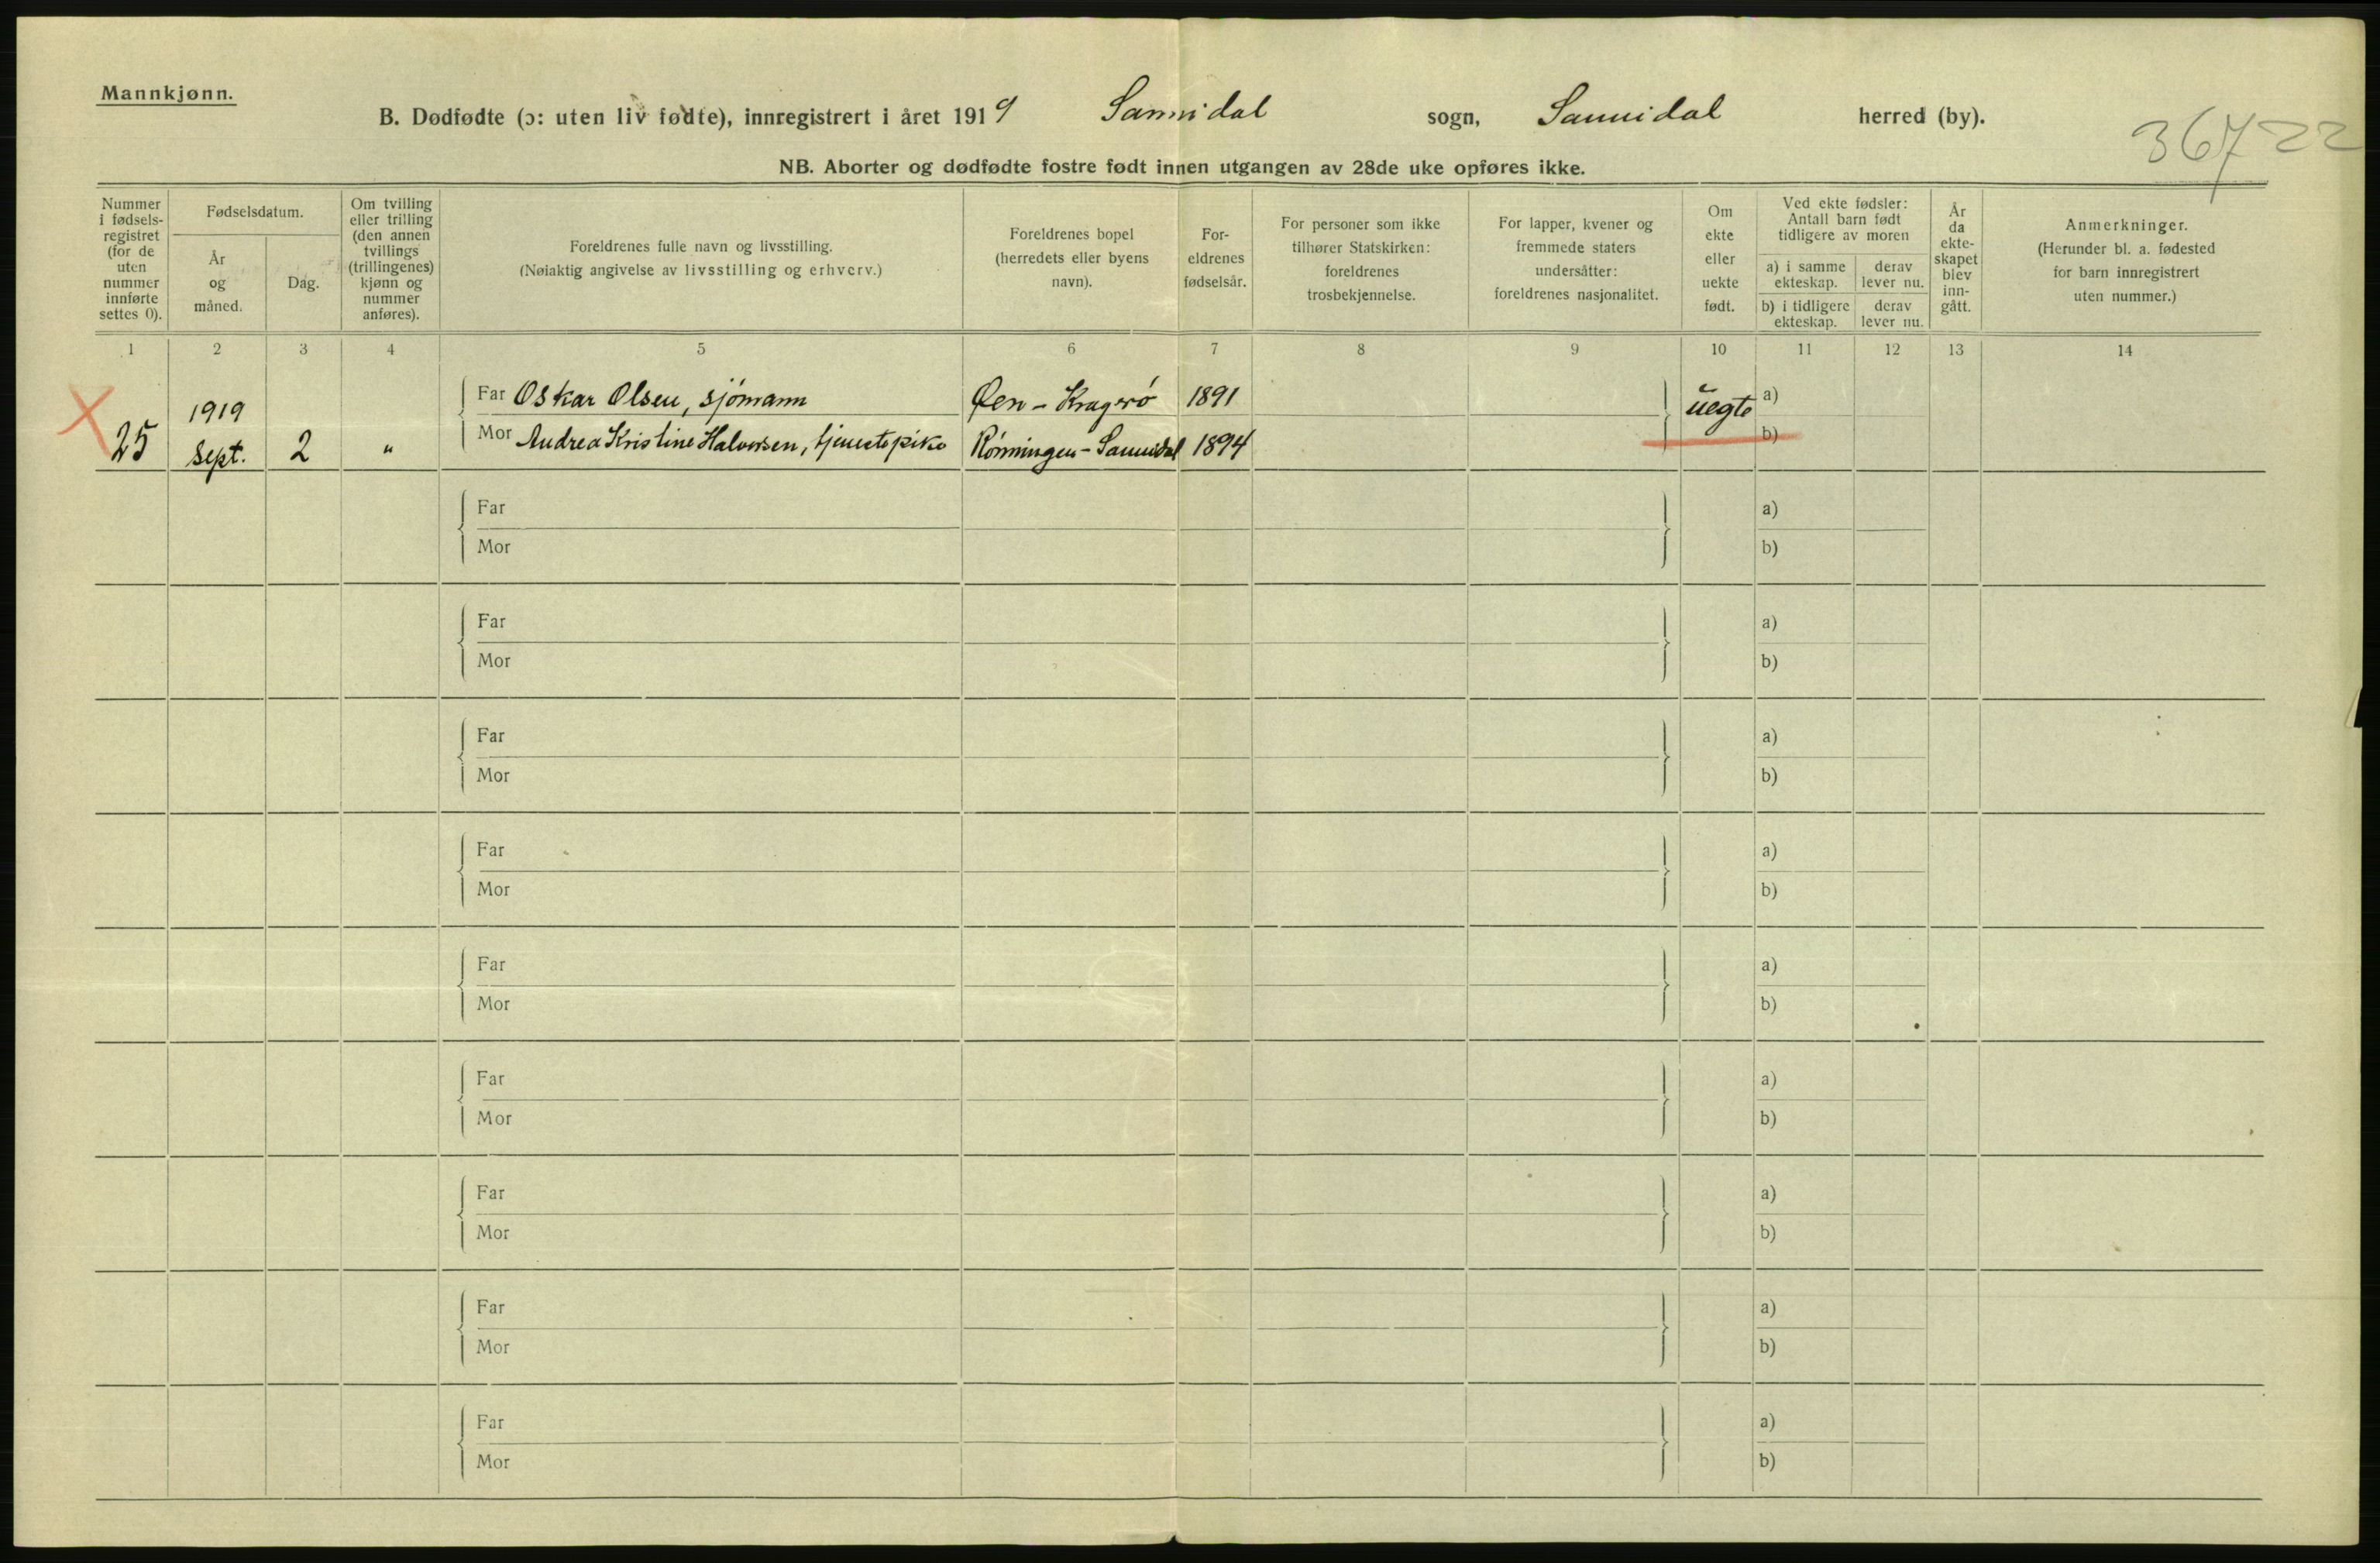 Mannkjønn.
B. Dødfødte (ɔ: uten liv fødte), innregistrert i året 1919 Sannidal sogn, Sannidal herred (by).
36722
NB. Aborter og dødfødte fostre født innen utgangen av 28de uke opføres ikke.
Nummer i fødsels-registret (for de uten nummer innførte settes 0).
Fødselsdatum.
År og måned.
Dag.
Om tvilling eller trilling (den annen tvillings (trillingenes) kjønn og nummer anføres).
Foreldrenes fulle navn og livsstilling.
(Nøiaktig angivelse av livsstilling og erhverv.)
Foreldrenes bopel (herredets eller byens navn).
For-eldrenes fødselsår.
For personer som ikke tilhører Statskirken: foreldrenes trosbekjennelse.
For lapper, kvener og fremmede staters undersåtter: foreldrenes nasjonalitet.
Om ekte eller uekte født.
Ved ekte fødsler: Antall barn født tidligere av moren
a) i samme ekteskap.
derav lever nu.
b) i tidligere ekteskap.
derav lever nu.
År da ekte-skapet blev inn-gått.
Anmerkninger.
(Herunder bl. a. fødested for barn innregistrert uten nummer.)
1 2 3 4 5 6 7 8 9 10 11 12 13 14
1919 Far Oskar Olsen, sjømann Øen - Kragerø 1891 uegte a)
25 Sept. 2 " Mor Andrea Kristine Halvorsen, tjenestepike Rønningen - Sannidal 1894 b)
Far a)
Mor b)
Far a)
Mor b)
Far a)
Mor b)
Far a)
Mor b)
Far a)
Mor b)
Far a)
Mor b)
Far a)
Mor b)
Far a)
Mor b)
Far a)
Mor b)